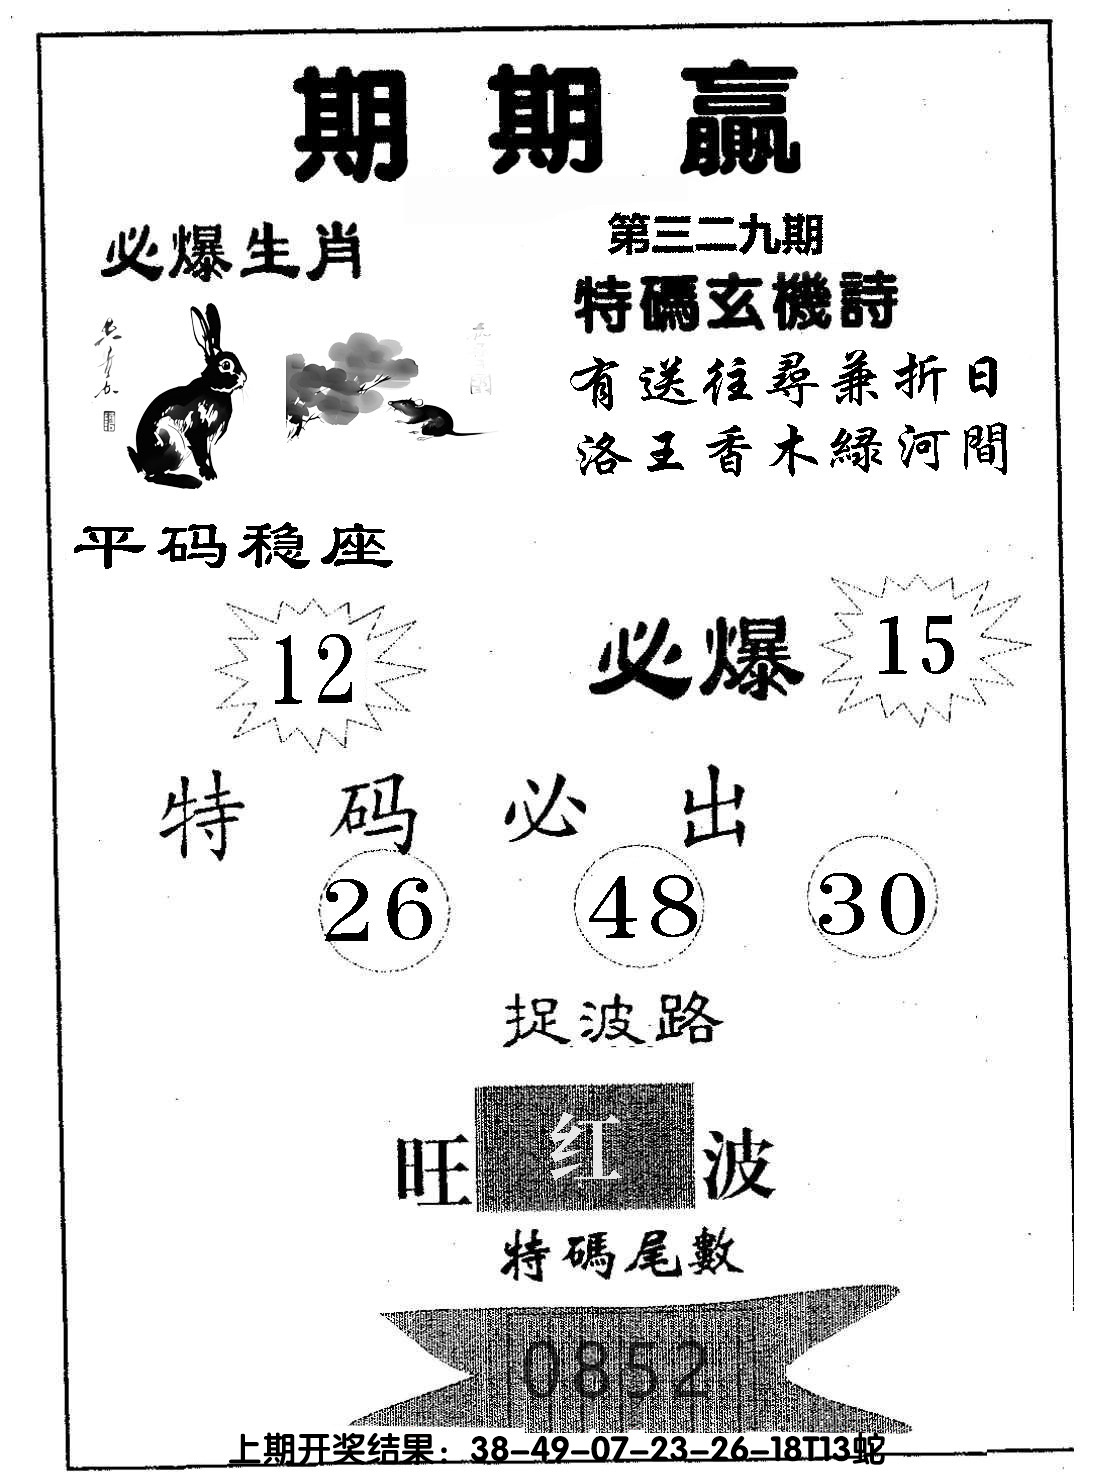 期期贏
必爆生肖
第三二九期
特碼玄機詩
有送往尋兼折日
洛王香木緑河間
平码稳座
12
必爆 15
特码必出
26 48 30
捉波路
旺 红 波
特碼尾數
0852
上期开奖结果：38-49-07-23-26-18T13蛇